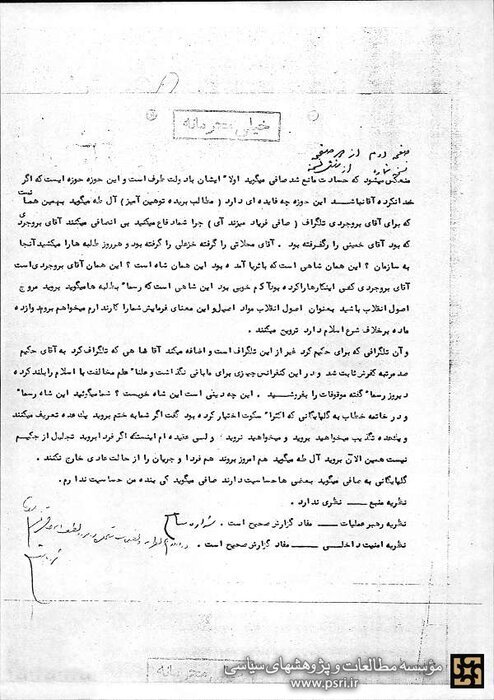 خیلی محرمانه
صفحه دوم از
منعکس میشود که حسادت مانع شد صافی میگوید اولا" ایشان با دولت طرف است و این حوزه حوزه ایست که اگر
خدا نکرده آقا نباشد این حوزه چه فایده ای دارد (مطالب بریده توهین آمیز) آل طه میگوید بهمین هما نیست
که برای آقای بروجردی تلگراف (صافی فریاد میزند آی) چرا شما دفاع میکنید بی انصافی میکنند آقای بروجردی
که بود آقای خمینی را نگرفته بود. آقای محلاتی را گرفته خزعلی را گرفته بود و هر روز طلبه ها را میکشید آنجا
به سازمان ؟ این همان شاهی است که با ثریا آمده بود این همان شاه است ؟ این همان آقای بروجردی است
آقای بروجردی کفی اینکارها را کرده بود آدم خوبی بود این شاهی است که رسما" بطلبه ها میگوید بروید مروج
اصول انقلاب باشید بعنوان اصول انقلاب مواد اصیل و این معنای فرمایش شما را کارندارم میخواهم بروم دوازده
ماده بر خلاف شرع اسلام دارد ترویج میکنند.
و آن تلگرافی که برای حکیم کرد غیر از این تلگراف است و اضافه میکند آقا شاهی که تلگراف کرد به آقای حکیم
صد مرتبه کفرش ثابت شد و در این کنفرانس چیزی برای ما باقی نگذاشت و علنا" علم مخالفت با اسلام را بلند کرده
دیروز رسما" گفته موقوفات را بفروشید. این چه دینی است این شاه خوبست ؟ شما میگوئید این شاه رسما"
و در خاتمه خطاب به گلپایگانی که اکثرا" سکوت اختیار کرده بود گفت اگر شما به ختم بروید یک عده تعریف میکنند
و یک عده تکذیب میخواهید بروید و میخواهید نروید ؛ ولی عقیده ام اینستکه اگر فردا بروید تجلیل از حکیم
نیست همین الان بروید آل طه میگوید هم امروز بروند هم فردا و جریان را از حالت عادی خارج نکنند.
گلپایگانی به صافی میگوید بعضی ها حساسیت دارند صافی میگوید کی بنده من حساسیت ندارم.
نظریه منبع ـــ نظری ندارد.
نظریه رهبر عملیات ـــ مفاد گزارش صحیح است.
نظریه امنیت داخلی ـــ مفاد گزارش صحیح است.
محرمانه
مؤسسه مطالعات و پژوهشهای سیاسی
www.psri.ir